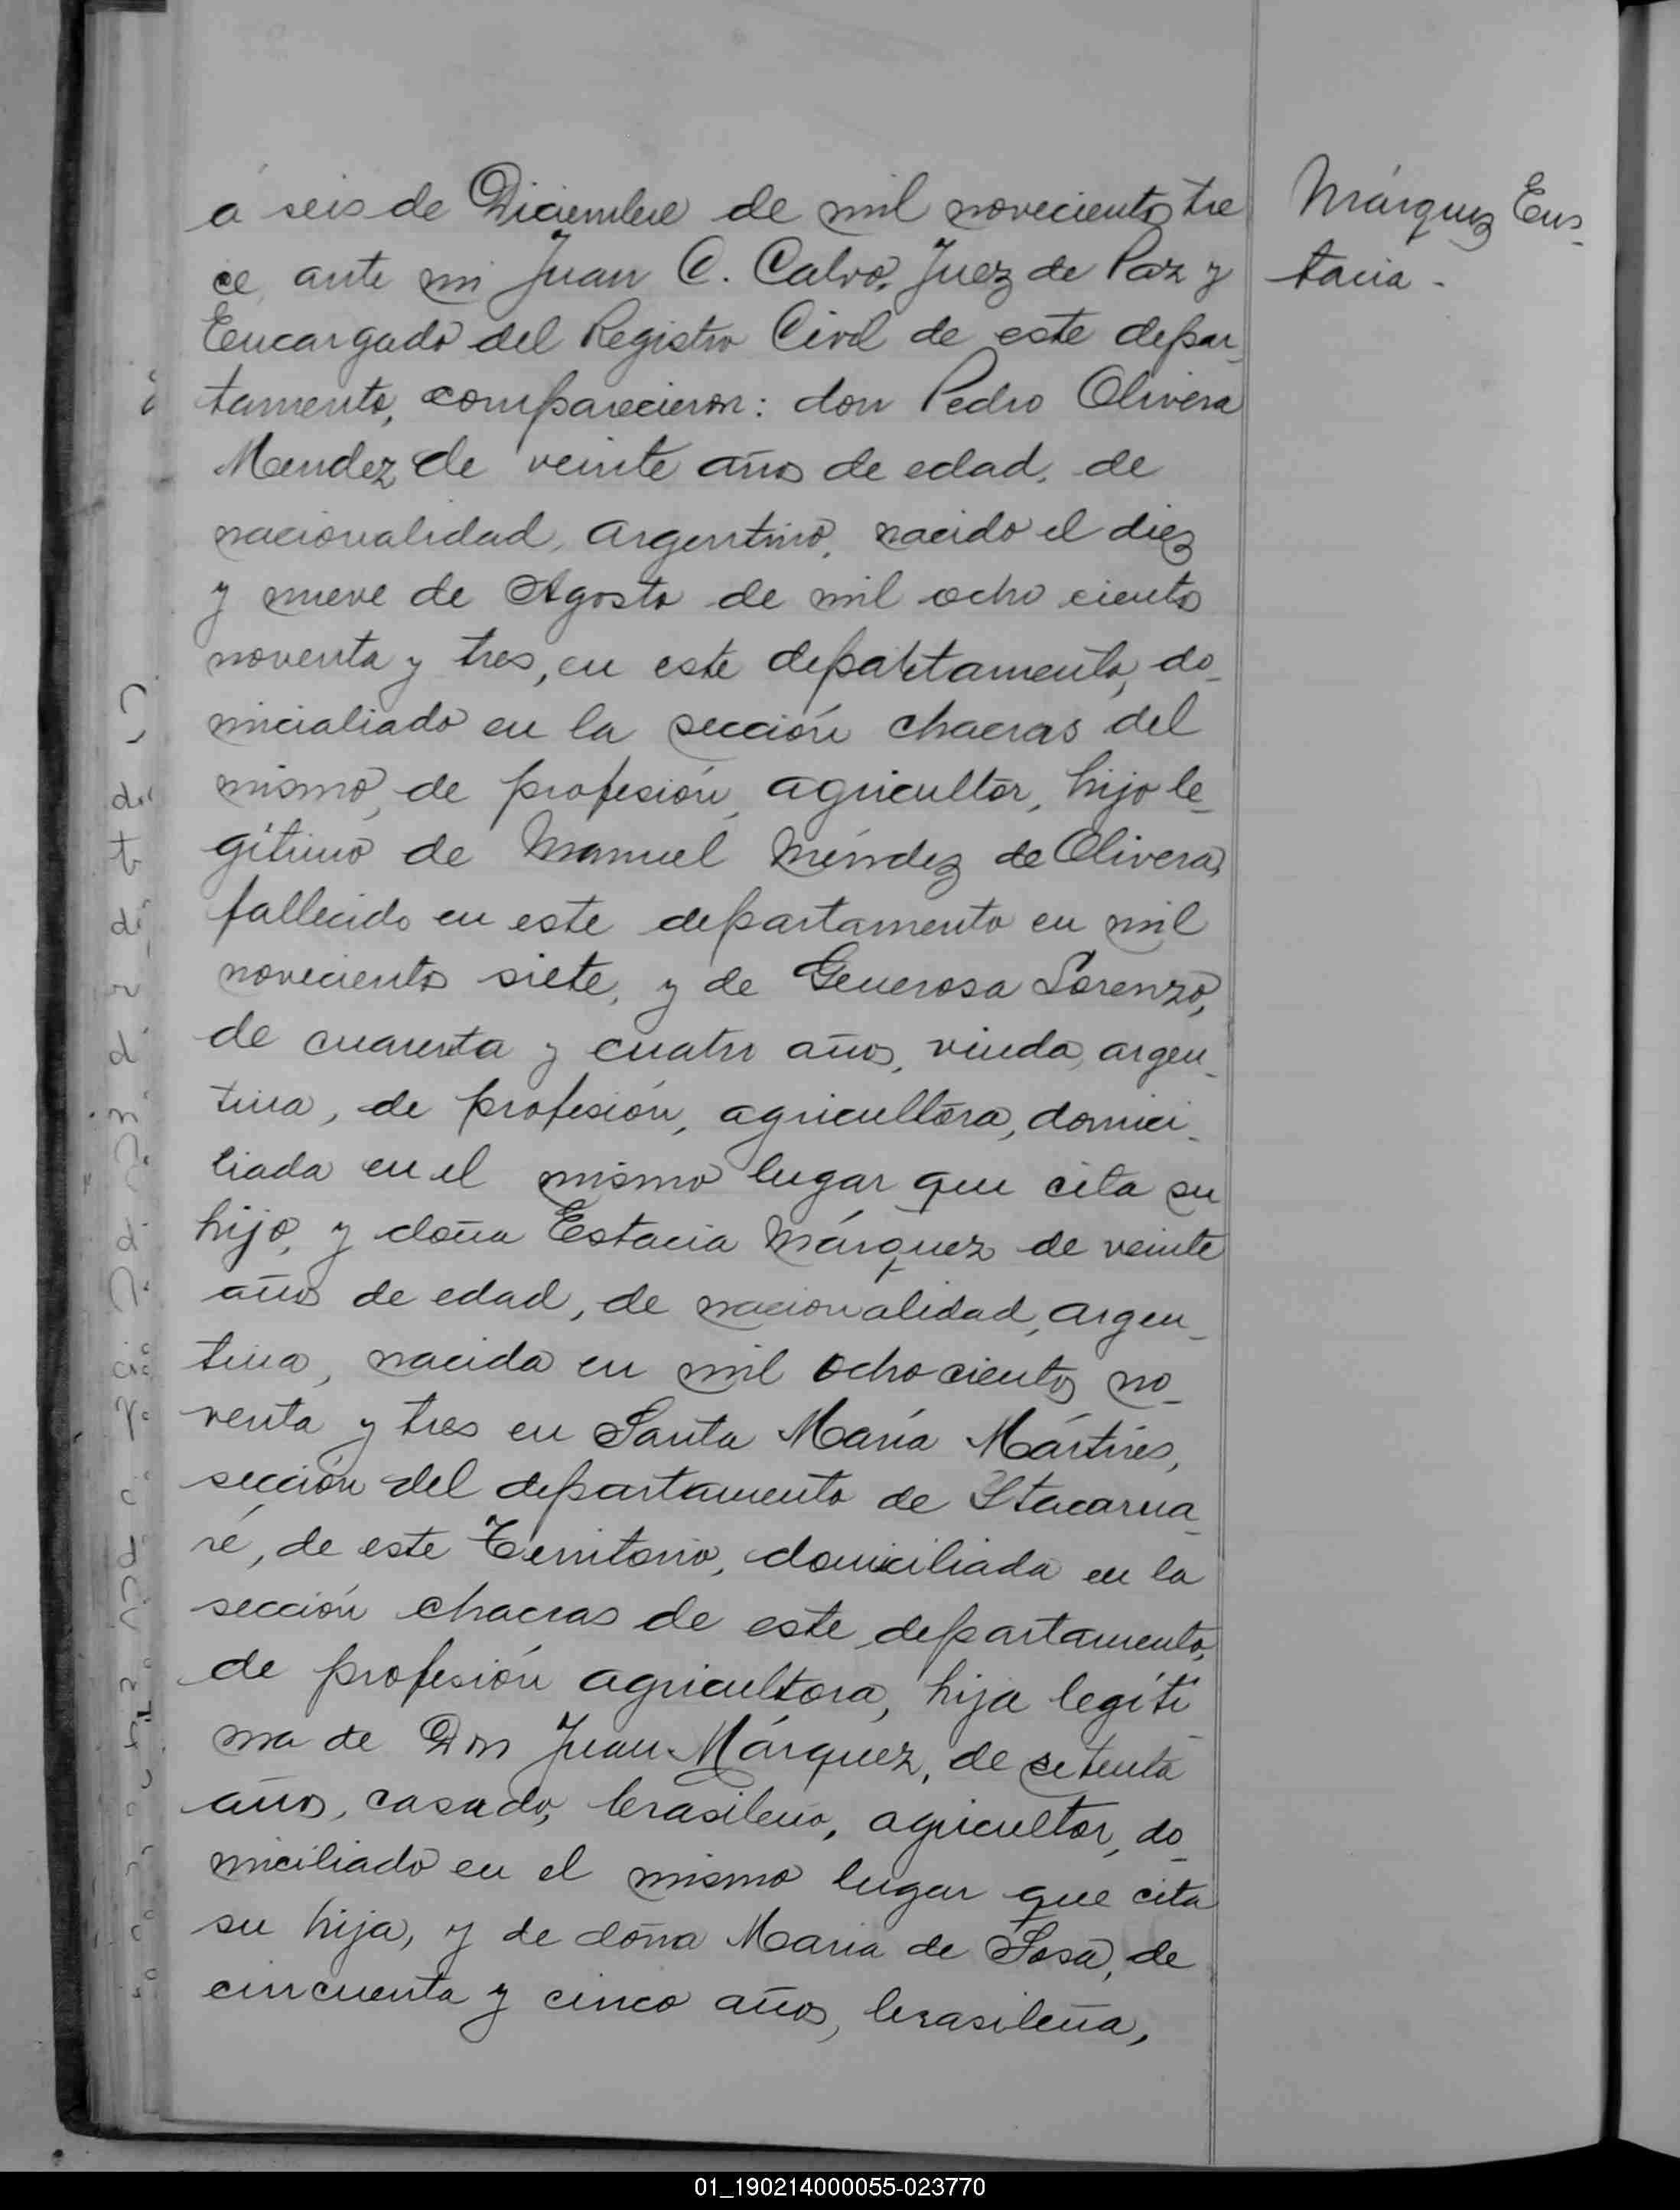 á seis de Diciembre de mil novecientos tre
ce, ante mi Juan C. Calvo, Juez de Paz y
Encargado del Registro Civil de este depar-
tamento, comparecieron: don Pedro Olivera
Mendez de veinte años de edad, de
nacionalidad, argentino, nacido el diez
y nueve de Agosto de mil ocho cientos
noventa y tres, en este departamento, do-
micialiado en la sección chacras del
mismo, de profesión, agricultor, hijo le-
gítimo de Manuel Méndez de Olivera,
fallecido en este departamento en mil
novecientos siete, y de Generosa Lorenzo,
de cuarenta y cuatro años, viuda, argen-
tina, de profesión, agricultora, domici-
liada en el mismo lugar que cita su
hijo, y doña Estacia Márquez de veinte
años de edad, de nacionalidad, argen-
tina, nacida en mil ochocientos no-
venta y tres en Santa María Mártires,
sección del departamento de Itacarua-
ré, de este Territorio, domiciliada en la
sección chacras de este departamento,
de profesión agricultora, hija legíti-
ma de Don Juan Márquez, de setenta
años, casado, brasileño, agricultor, do-
miciliado en el mismo lugar que cita
su hija, y de doña Maria de Sosa, de
cincuenta y cinco años, brasileña,
Márquez Eus-
tacia -
01_190214000055-023770